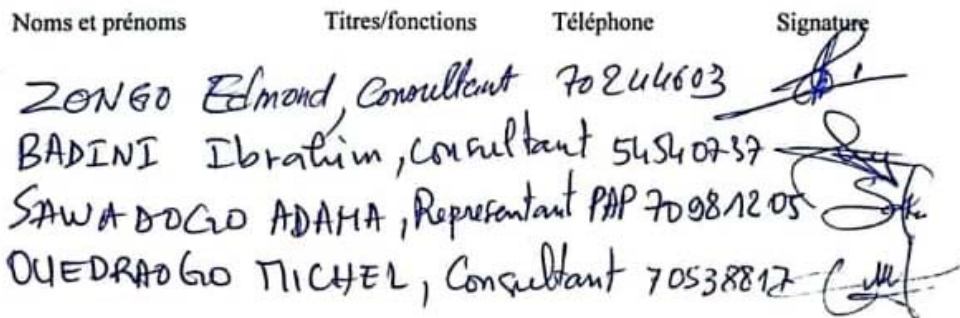 Noms et prénoms Titres/fonctions Téléphone Signature
ZONGO Edmond, Consultant 70244603
BADINI Ibrahim, consultant 54540737
SAWADOGO ADAMA, Representant PAP 70981205
OUEDRAOGO MICHEL, Consultant 70538817